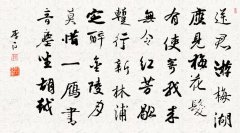 送君游梅湖
應見梅花發
有使寄我来
無令红芳歇
暫行新林浦
定醉金陵月
莫惜一雁書
音塵坐胡越